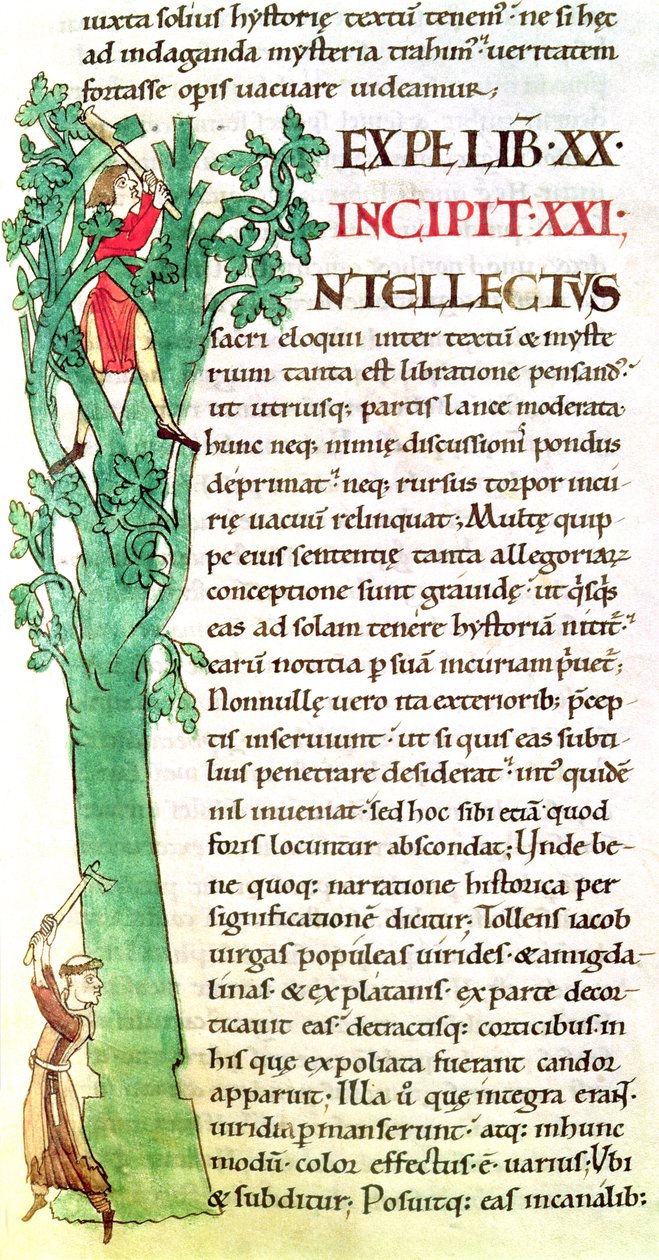 iuxta solius hystorię textū tenem᷒· ne si hęc
ad indaganda mysteria trahim᷒· ueritatem
fortasse opis uacuare uideamur;
EXPƚ LIB̄·XX·
INCIPIT·XXI·;
NTELLECTVS
sacri eloquii inter textū & myste
rium tanta est libratione pensand᷒·
ut utriusq; partis lance moderata
hunc neq; nimię discussionis pondus
deprimat· neq; rursus torpor incu
rię uacuū relinquat; Multę quip
pe eius sententię tanta allegoriaꝝ
conceptione sunt grauidę· ut qͥsqͥs
eas ad solam tenere hystoriā nitit᷒·
earū notitia ꝑ suā incuriam pͥuet᷒;
Nonnullę uero ita exteriorib; p̄cep
tis inseruiunt· ut si quis eas subti
lius penetrare desiderat· int᷒ quidē
nil inueniat· sed hoc sibi etiā quod
foris locuntur abscondat; Unde be-
ne quoq: narratione historica per
significationē dicitur; Tollens iacob
uirgas populeas uirides· & amigda-
linas· & ex platanis· ex parte decor-
ticauit eas· detractisq: corticibus· in
his quę expoliata fuerant candor
apparuit· Illa u͛ quę integra erant·
uiridia ꝑmanserunt· atq: in hunc
modū· color effectus· ē· uarius; Vbi
& subditur; Posuitq: eas in canalib: